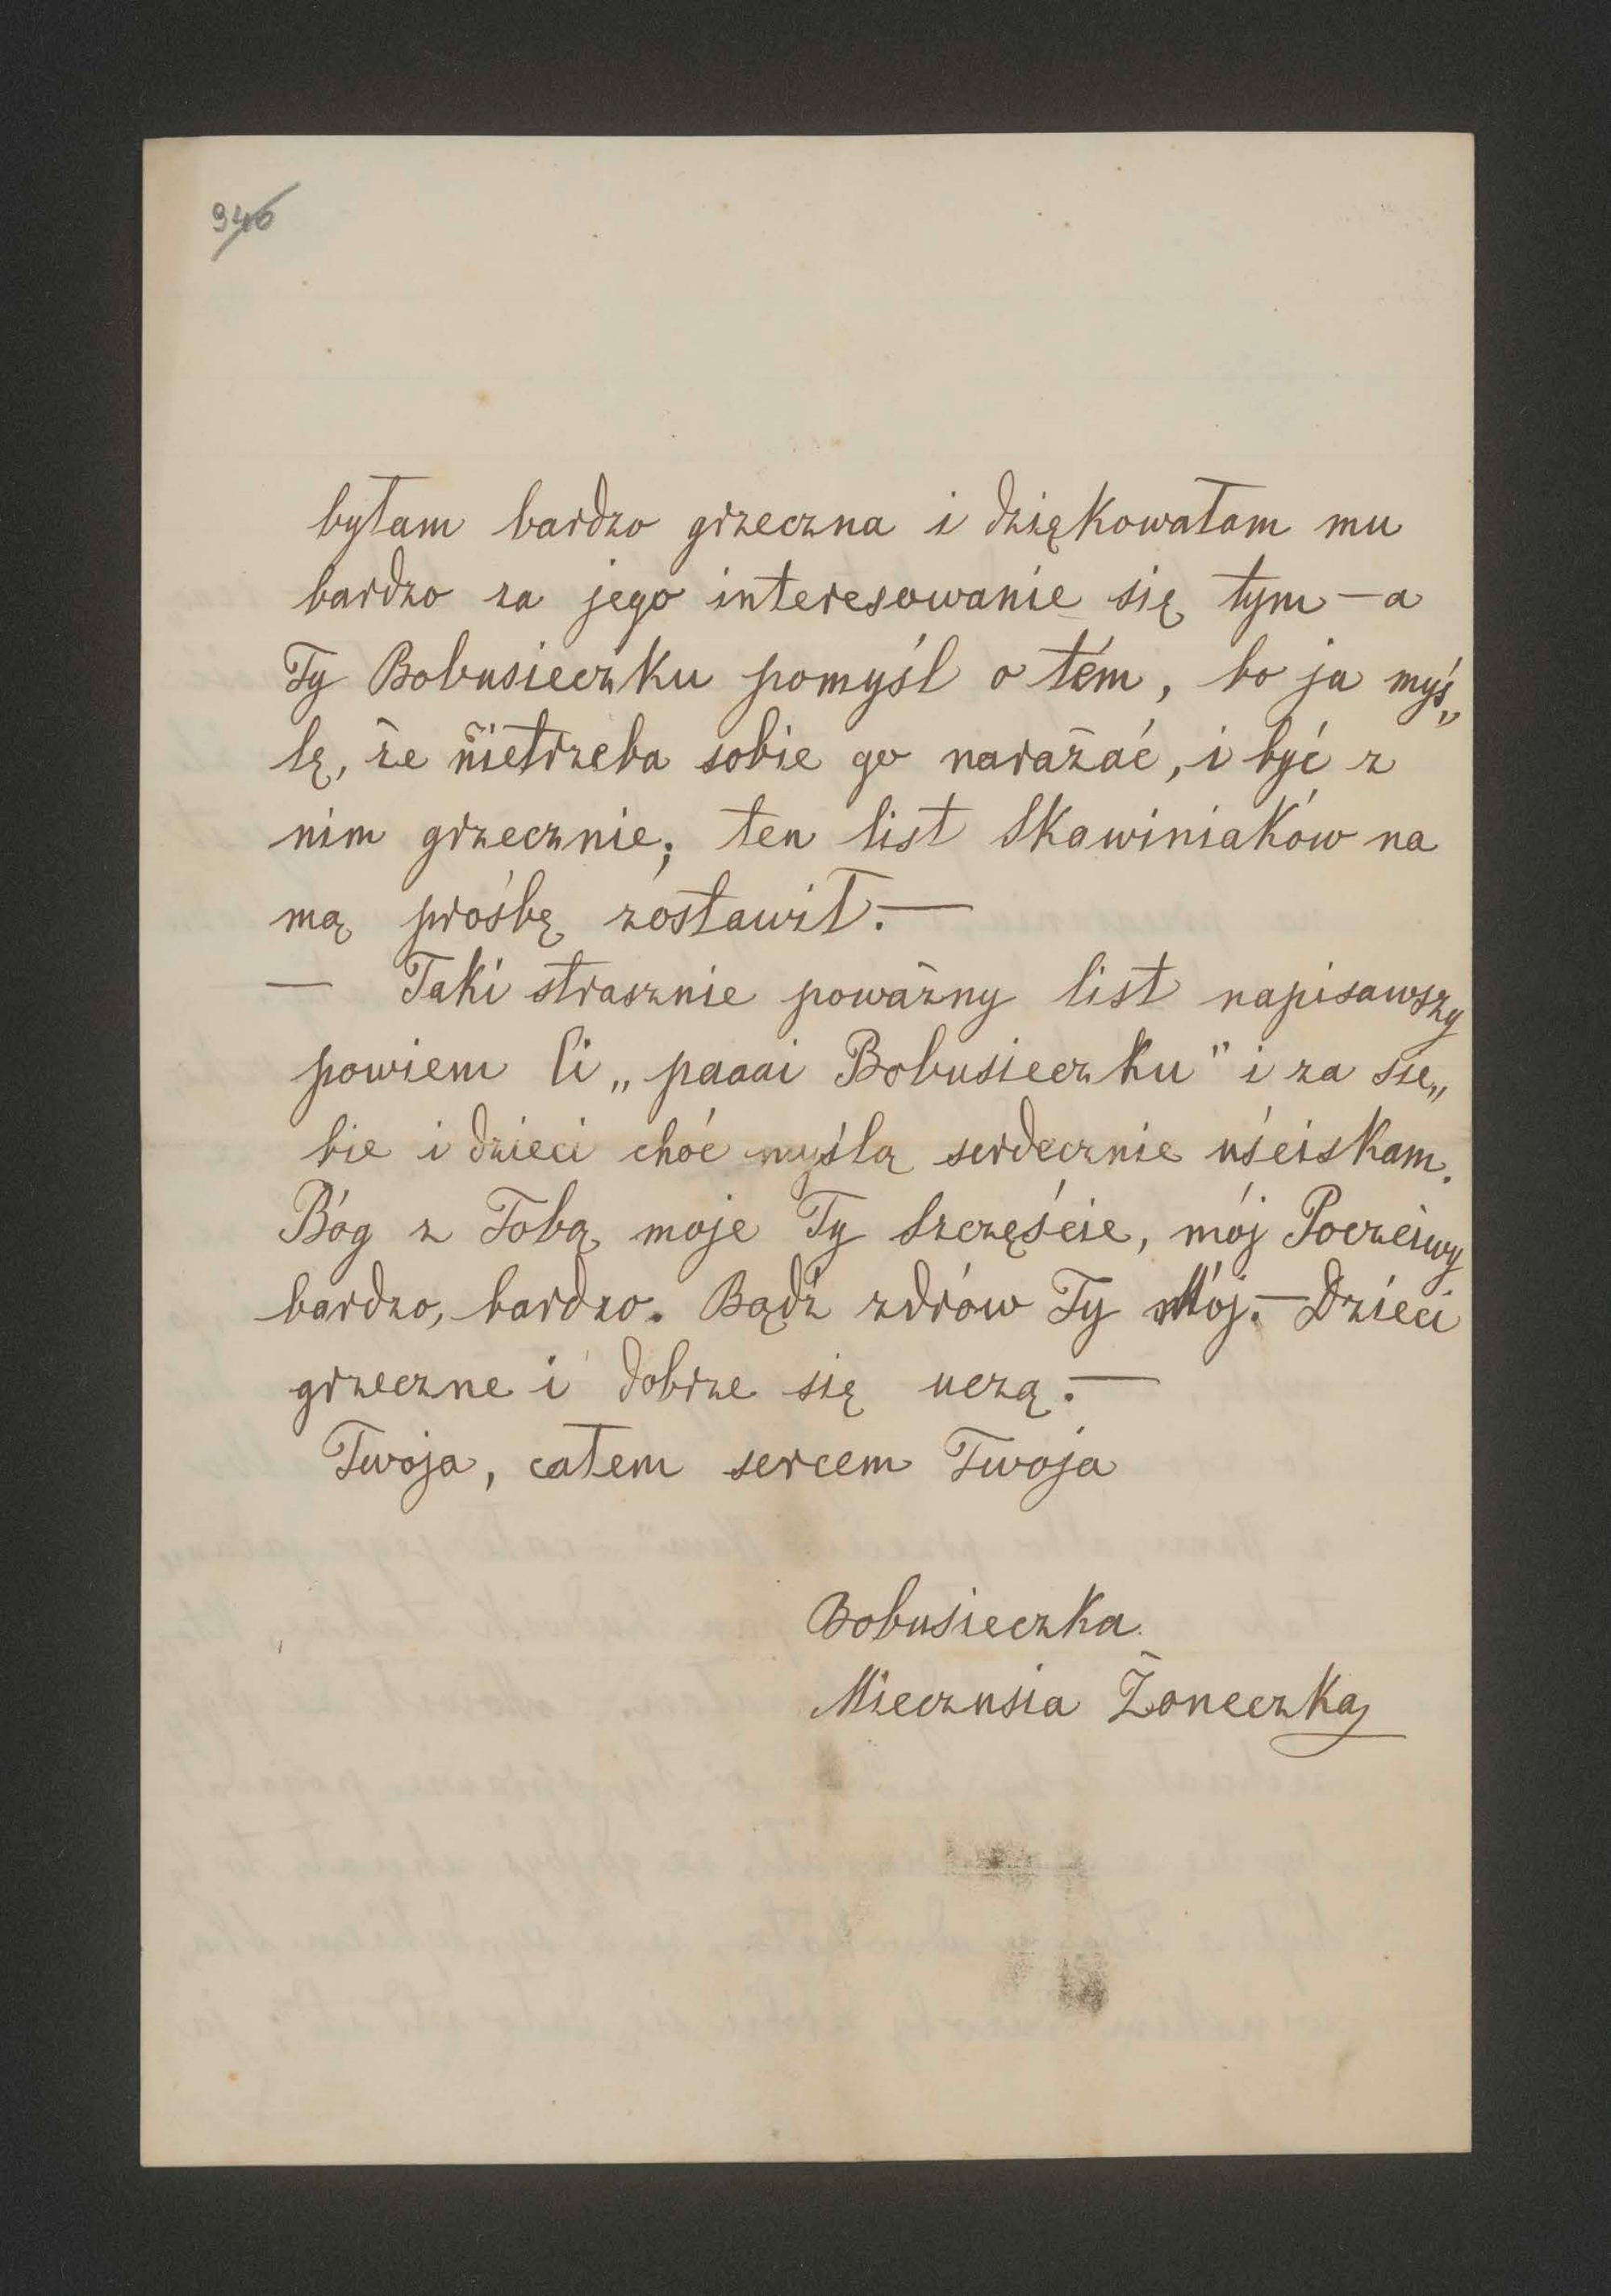 946
byłam bardzo grzeczna i dziękowałam mu
bardzo za jego interesowanie się tym — a
Ty Bobusieczku pomyśl o tém, bo ja myś„
lę, że nietrzeba sobie go narażać, i być z
nim grzecznie; ten list Skawiniaków na
mą prośbę zostawił. —
— Taki strasznie poważny list napisawszy
powiem Ci „paaai Bobusieczku" i za sie„
bie i dzieci choć myślą serdecznie uściskam.
Bóg z Tobą moje Ty Szczęście, mój Poczciwy
bardzo, bardzo. Bądź zdrów Ty Mój. — Dzieci
grzeczne i dobrze się uczą. —
Twoja, całem sercem Twoja
Bobusieczka
Mieczusia Żoneczka